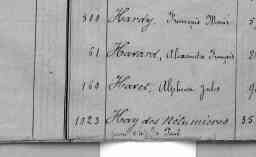 800 Hardy, François Marie
61 Havard, Alexandre François
160 Havet, Alphonse Jules
1023 Hay des Nétumières 35